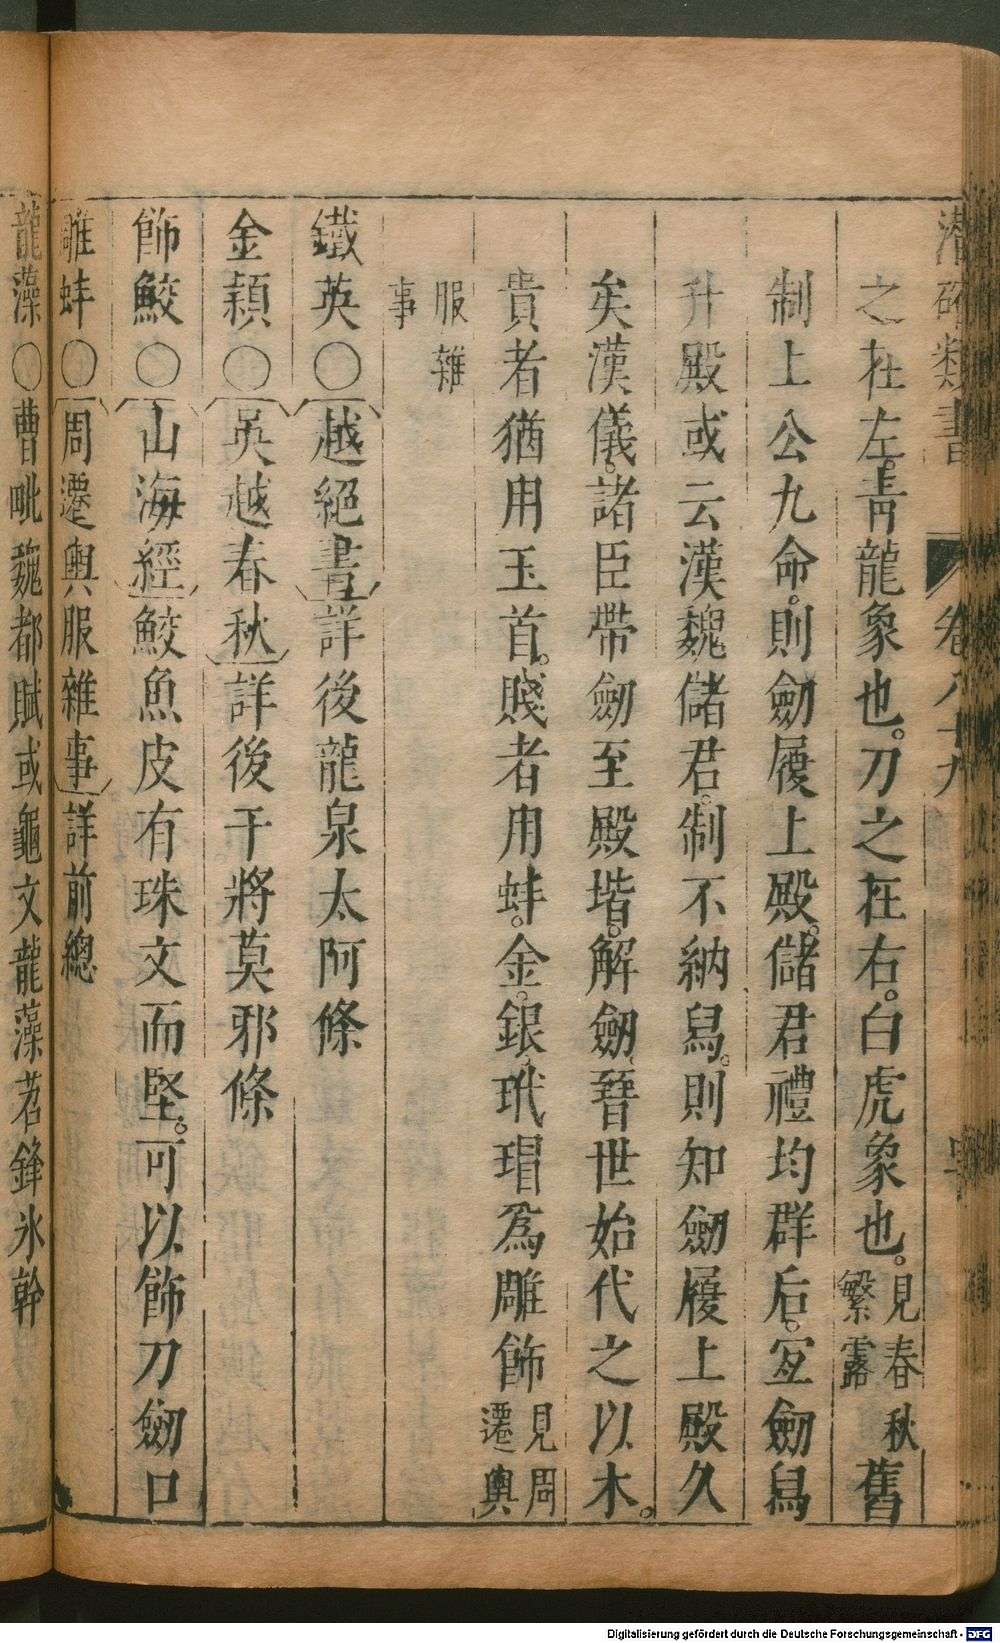 潛確類書
卷八十九
之在左。青龍象也。刀之在右。白虎象也。見春秋繁露舊
制上公九命。則劒履上殿。儲君禮均群后。宐劒舄
升殿或云漢魏儲君。制不納舄。則知劒履上殿久
矣漢儀。諸臣帶劒至殿堦。解劒、晉世始代之以木。
貴者猶用玉首。賤者用蚌。金。銀、玳瑁爲雕飾見周遷輿
服雜事
鐵英〇越絕書詳後龍泉太阿條
金穎〇吳越春秋詳後干將莫邪條
飾鮫〇山海經鮫魚皮有珠文而堅。可以飾刀劒口
雕蚌〇周遷輿服雜事詳前總
龍藻〇曹毗魏都賦或龜文龍藻若鋒氷幹
Digitalisierung gefördert durch die Deutsche Forschungsgemeinschaft - DFG